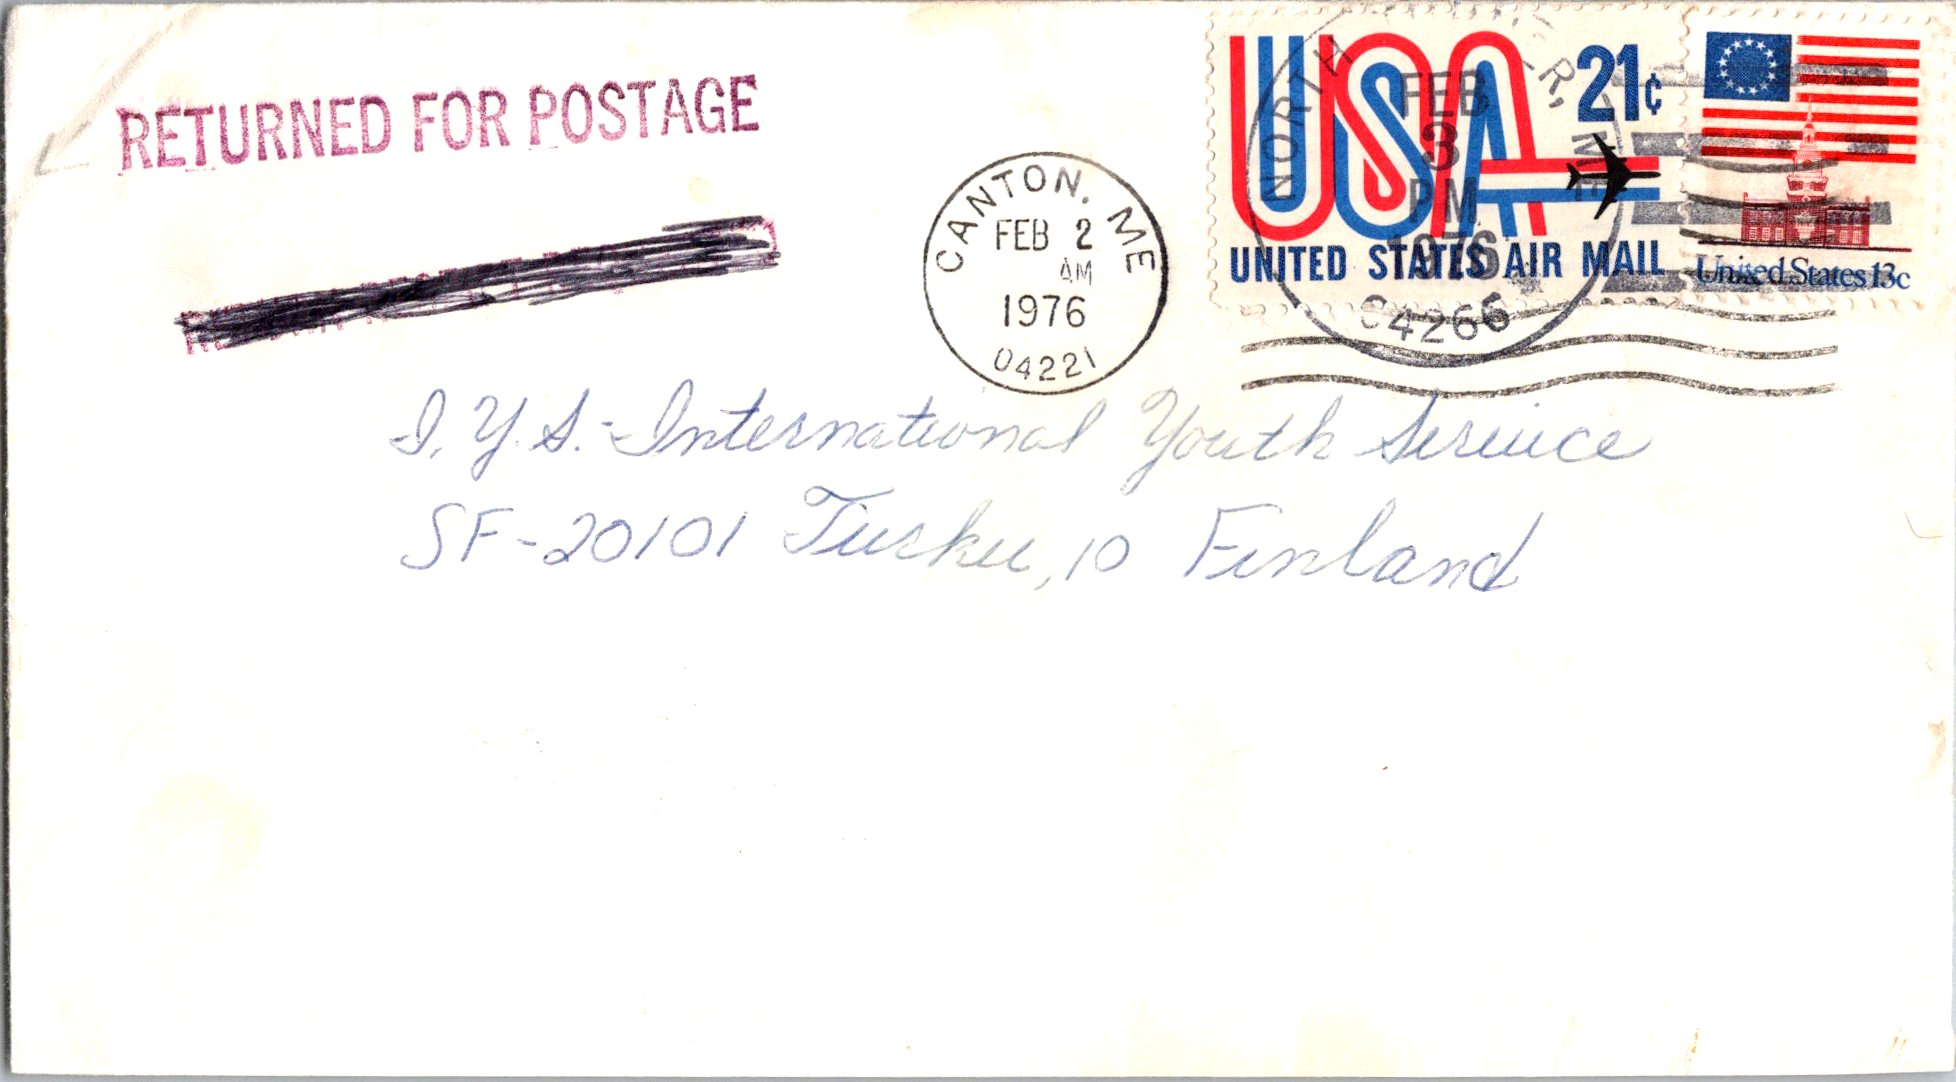 RETURNED FOR POSTAGE
CANTON, ME
FEB 2
AM
1976
04221
USA 21¢
UNITED STATES AIR MAIL
NORTH
R, ME
FEB
3
PM
1976
04266
United States 13c
I.Y.S.-International Youth Service
SF-20101 Turku, 10 Finland